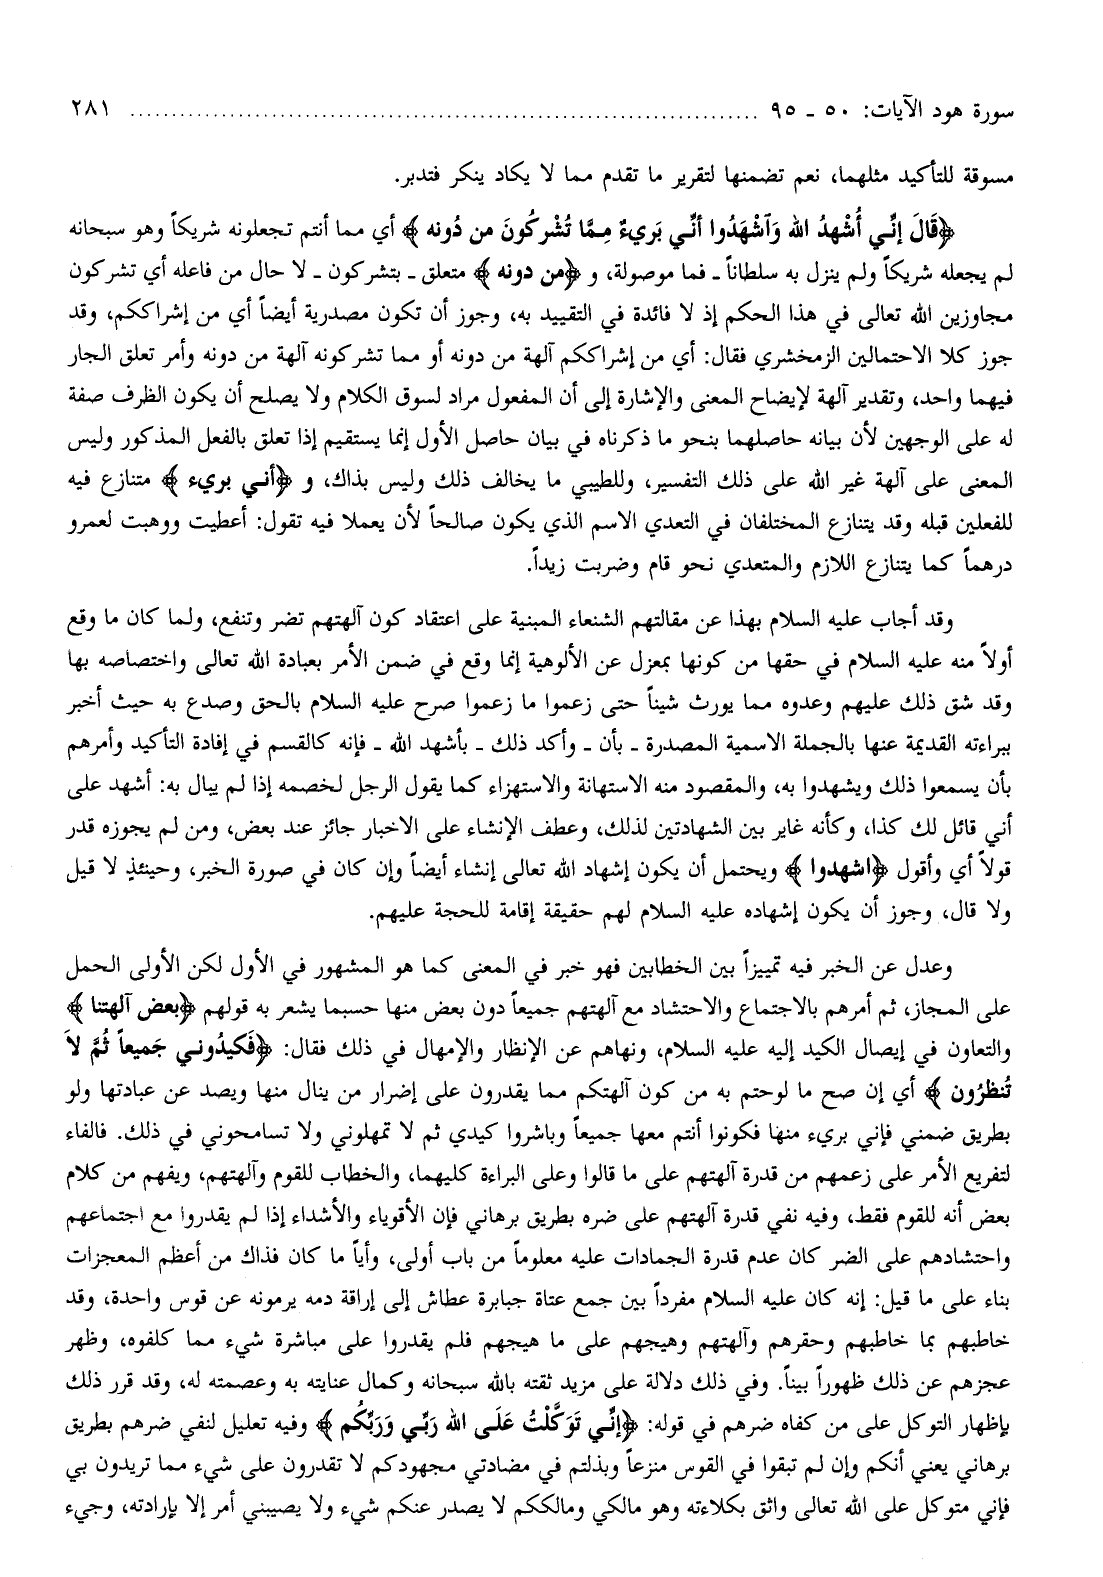 سورة هود الآيات: ٥٠ ـ ٩٥ ........................................................................ ٢٨١
مسوقة للتأكيد مثلهما، نعم تضمنها لتقرير ما تقدم مما لا يكاد ينكر فتدبر.
﴿قَالَ إنِّي أُشْهِدُ الله وَٱشْهَدُوا أنِّي بَريءٌ مِمَّا تُشْرِكُونَ من دُونه ﴾ أي مما أنتم تجعلونه شريكاً وهو سبحانه
لم يجعله شريكاً ولم ينزل به سلطاناً ـ فما موصولة، و ﴿من دونه ﴾ متعلق ـ بتشركون ـ لا حال من فاعله أي تشركون
مجاوزين الله تعالى في هذا الحكم إذ لا فائدة في التقييد به، وجوز أن تكون مصدرية أيضاً أي من إشراككم، وقد
جوز كلا الاحتمالين الزمخشري فقال: أي من إشراككم آلهة من دونه أو مما تشركونه آلهة من دونه وأمر تعلق الجار
فيهما واحد، وتقدير آلهة لإيضاح المعنى والإشارة إلى أن المفعول مراد لسوق الكلام ولا يصلح أن يكون الظرف صفة
له على الوجهين لأن بيانه حاصلهما بنحو ما ذكرناه في بيان حاصل الأول إنما يستقيم إذا تعلق بالفعل المذكور وليس
المعنى على آلهة غير الله على ذلك التفسير، وللطيبي ما يخالف ذلك وليس بذاك، و ﴿أني بريء ﴾ متنازع فيه
للفعلين قبله وقد يتنازع المختلفان في التعدي الاسم الذي يكون صالحاً لأن يعملا فيه تقول: أعطيت ووهبت لعمرو
درهماً كما يتنازع اللازم والمتعدي نحو قام وضربت زيداً.
وقد أجاب عليه السلام بهذا عن مقالتهم الشنعاء المبنية على اعتقاد كون آلهتهم تضر وتنفع، ولما كان ما وقع
أولاً منه عليه السلام في حقها من كونها بمعزل عن الألوهية إنما وقع في ضمن الأمر بعبادة الله تعالى واختصاصه بها
وقد شق ذلك عليهم وعدوه مما يورث شيناً حتى زعموا ما زعموا صرح عليه السلام بالحق وصدع به حيث أخبر
ببراءته القديمة عنها بالجملة الاسمية المصدرة ـ بأن ـ وأكد ذلك ـ بأشهد الله ـ فإنه كالقسم في إفادة التأكيد وأمرهم
بأن يسمعوا ذلك ويشهدوا به، والمقصود منه الاستهانة والاستهزاء كما يقول الرجل لخصمه إذا لم يبال به: أشهد على
أني قائل لك كذا، وكأنه غاير بين الشهادتين لذلك، وعطف الإنشاء على الاخبار جائز عند بعض، ومن لم يجوزه قدر
قولاً أي وأقول ﴿اشهدوا ﴾ ويحتمل أن يكون إشهاد الله تعالى إنشاء أيضاً وإن كان في صورة الخبر، وحينئذٍ لا قيل
ولا قال، وجوز أن يكون إشهاده عليه السلام لهم حقيقة إقامة للحجة عليهم.
وعدل عن الخبر فيه تمييزاً بين الخطابين فهو خبر في المعنى كما هو المشهور في الأول لكن الأولى الحمل
على المجاز، ثم أمرهم بالاجتماع والاحتشاد مع آلهتهم جميعاً دون بعض منها حسبما يشعر به قولهم ﴿بعض آلهتنا ﴾
والتعاون في إيصال الكيد إليه عليه السلام، ونهاهم عن الإنظار والإمهال في ذلك فقال: ﴿فَكيدُوني جَميعاً ثُمَّ لاَ
تُنظِرُون ﴾ أي إن صح ما لوحتم به من كون آلهتكم مما يقدرون على إضرار من ينال منها ويصد عن عبادتها ولو
بطريق ضمني فإني بريء منها فكونوا أنتم معها جميعاً وباشروا كيدي ثم لا تمهلوني ولا تسامحوني في ذلك. فالفاء
لتفريع الأمر على زعمهم من قدرة آلهتهم على ما قالوا وعلى البراءة كليهما، والخطاب للقوم وآلهتهم، ويفهم من كلام
بعض أنه للقوم فقط، وفيه نفي قدرة آلهتهم على ضره بطريق برهاني فإن الأقوياء والأشداء إذا لم يقدروا مع اجتماعهم
واحتشادهم على الضر كان عدم قدرة الجمادات عليه معلوماً من باب أولى، وأياً ما كان فذاك من أعظم المعجزات
بناء على ما قيل: إنه كان عليه السلام مفرداً بين جمع عتاة جبابرة عطاش إلى إراقة دمه يرمونه عن قوس واحدة، وقد
خاطبهم بما خاطبهم وحقرهم وآلهتهم وهيجهم على ما هيجهم فلم يقدروا على مباشرة شيء مما كلفوه، وظهر
عجزهم عن ذلك ظهوراً بيناً. وفي ذلك دلالة على مزيد ثقته بالله سبحانه وكمال عنايته به وعصمته له، وقد قرر ذلك
بإظهار التوكل على من كفاه ضرهم في قوله: ﴿إنِّي تَوَكَّلْتُ عَلَى الله رَبِّي وَرَبِّكُم ﴾ وفيه تعليل لنفي ضرهم بطريق
برهاني يعني أنكم وإن لم تبقوا في القوس منزعاً وبذلتم في مضادتي مجهودكم لا تقدرون على شيء مما تريدون بي
فإني متوكل على الله تعالى واثق بكلاءته وهو مالكي ومالككم لا يصدر عنكم شيء ولا يصيبني أمر إلا بإرادته، وجيء